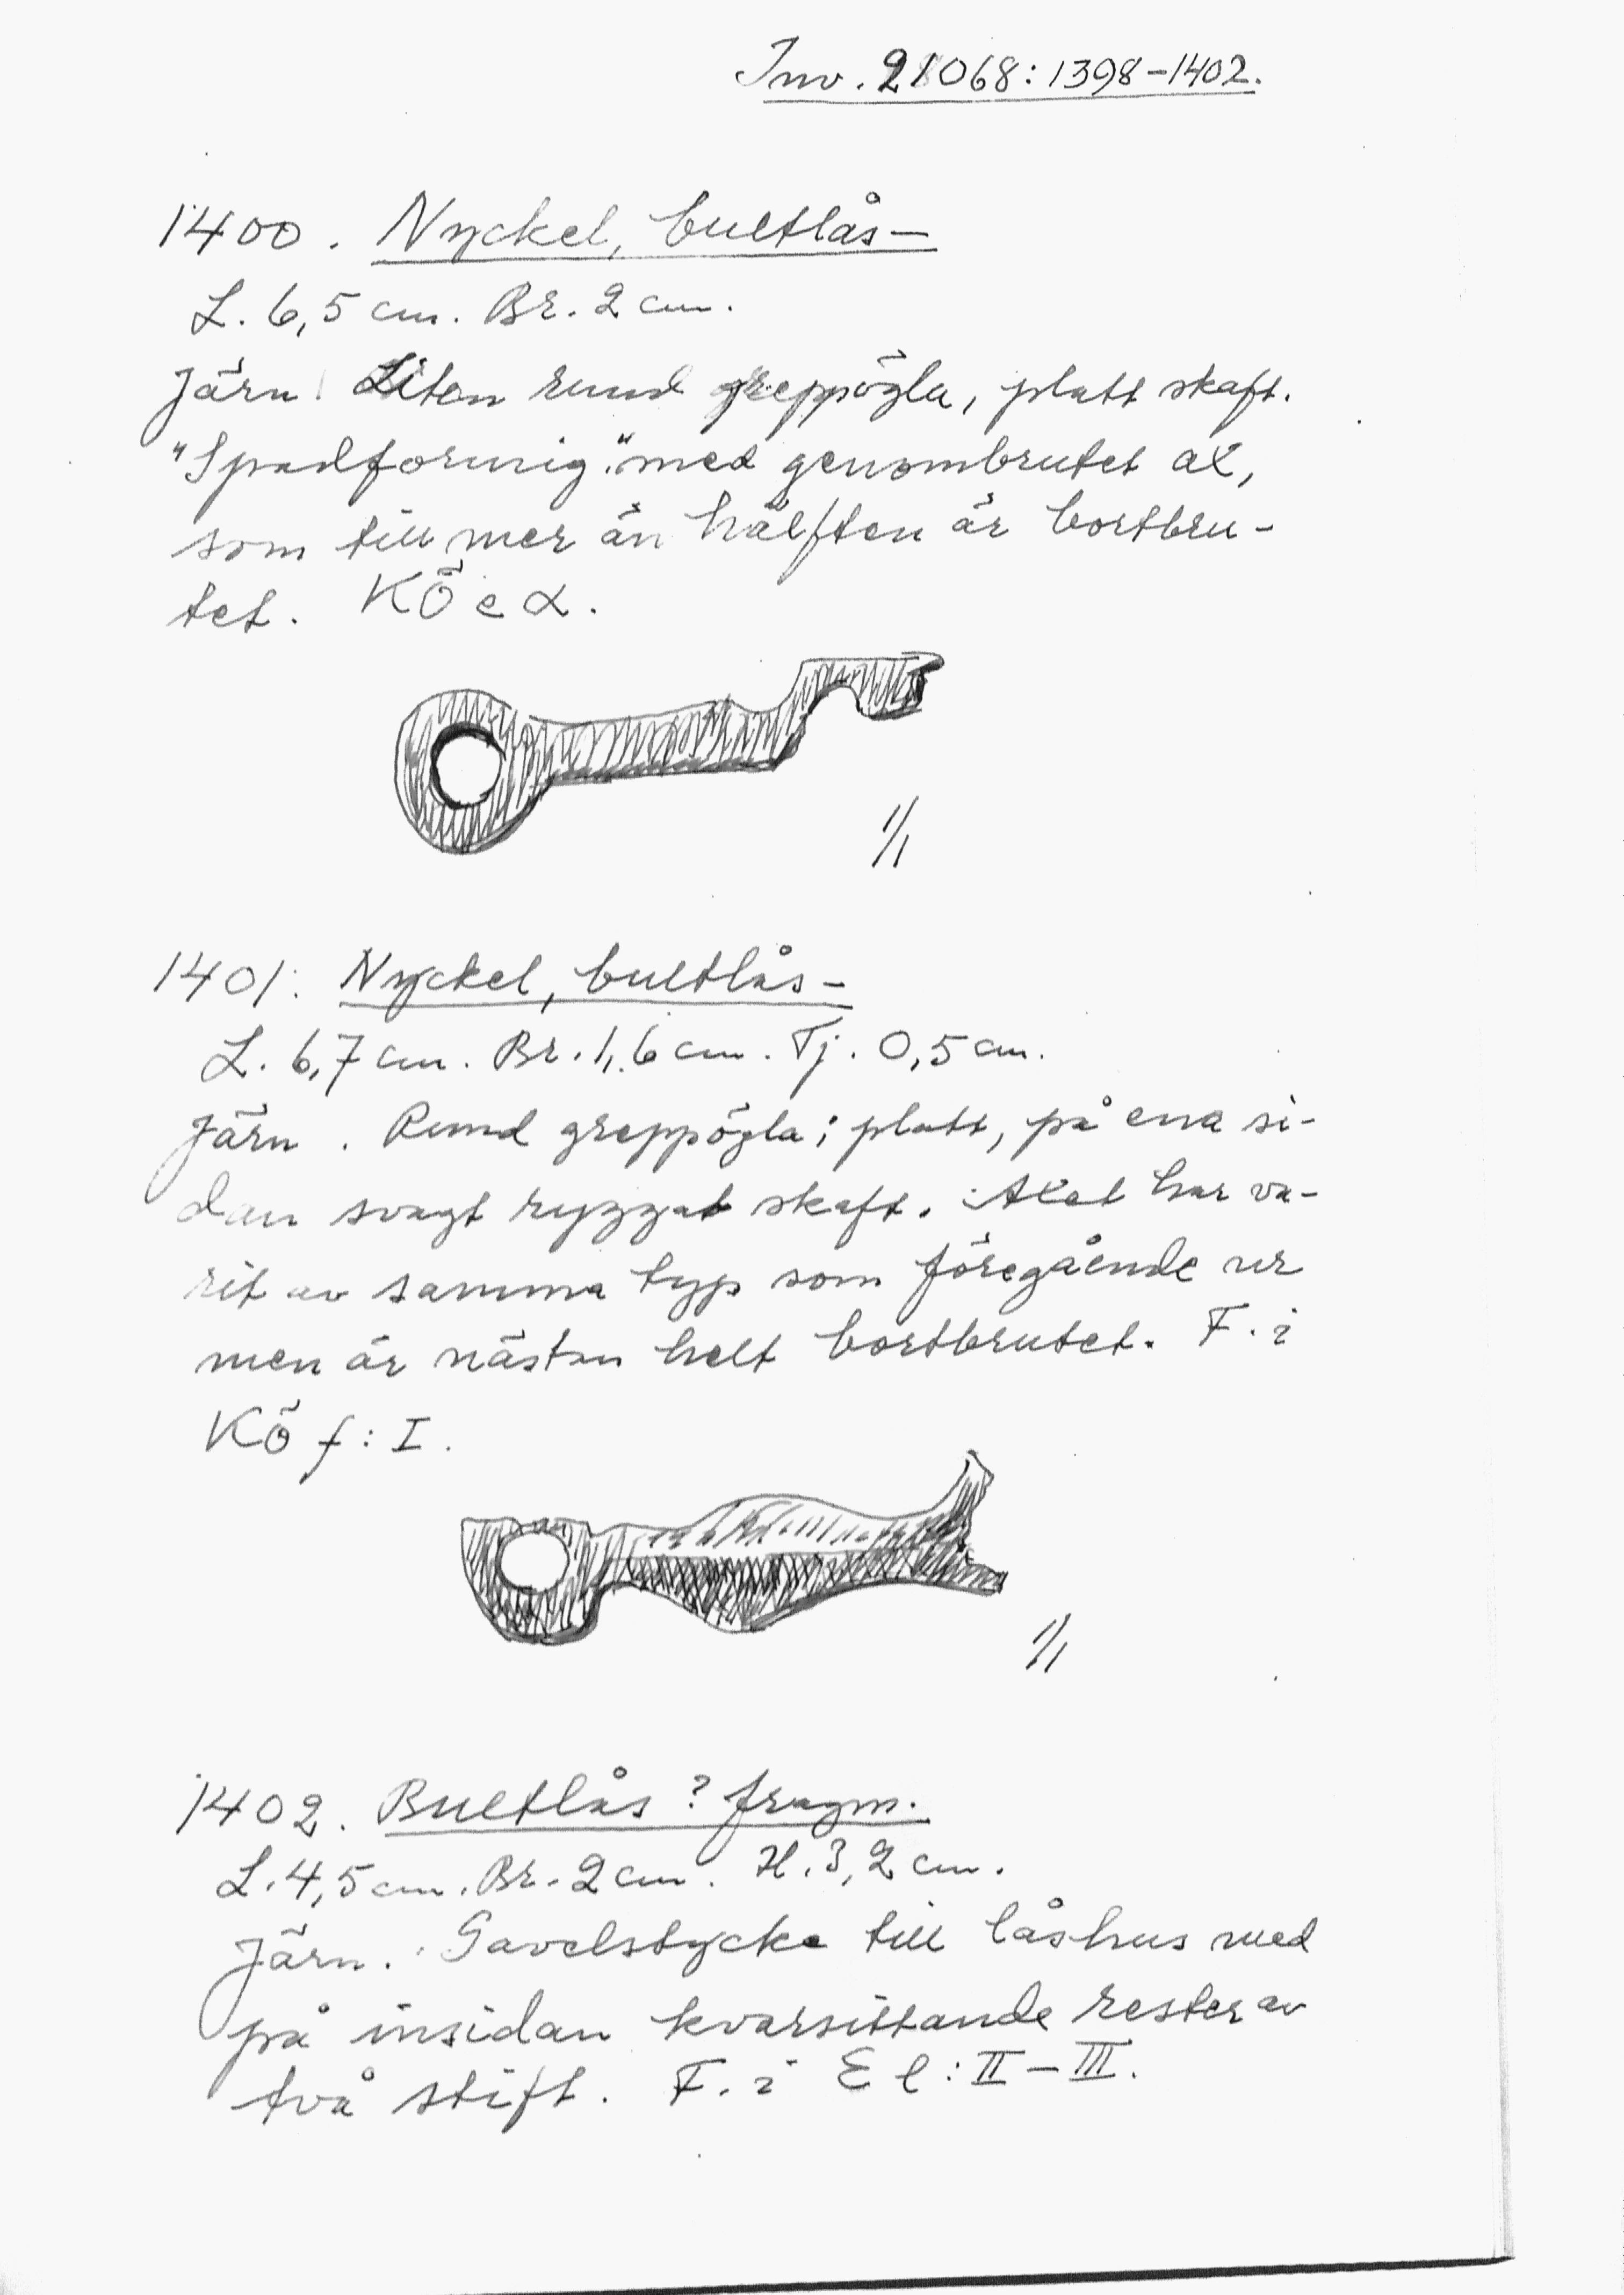 Inv. 21068: 1398-1402.
1400. Nyckel, bultlås-
L. 6,5 cm. Br. 2 cm.
Järn. Liten rund greppögla, platt skaft.
"Spadformig" med genombrutet ax,
som till mer än hälften är bortbru-
tet. KÖ e α.
1/1
1401. Nyckel, bultlås-
L. 6,7 cm. Br. 1,6 cm. Tj. 0,5 cm.
Järn. Rund greppögla; platt, på ena si-
dan svagt ryggat skaft. Axet har va-
rit av samma typ som föregående nr
men är nästan helt bortbrutet. F. i
KÖ f: I.
1/1
1402. Bultlås? fragm.
L. 4,5 cm. Br. 2 cm. H. 3,2 cm.
Järn. Gavelstycke till låshus med
på insidan kvarsittande rester av
två stift. F. i E l: II-III.